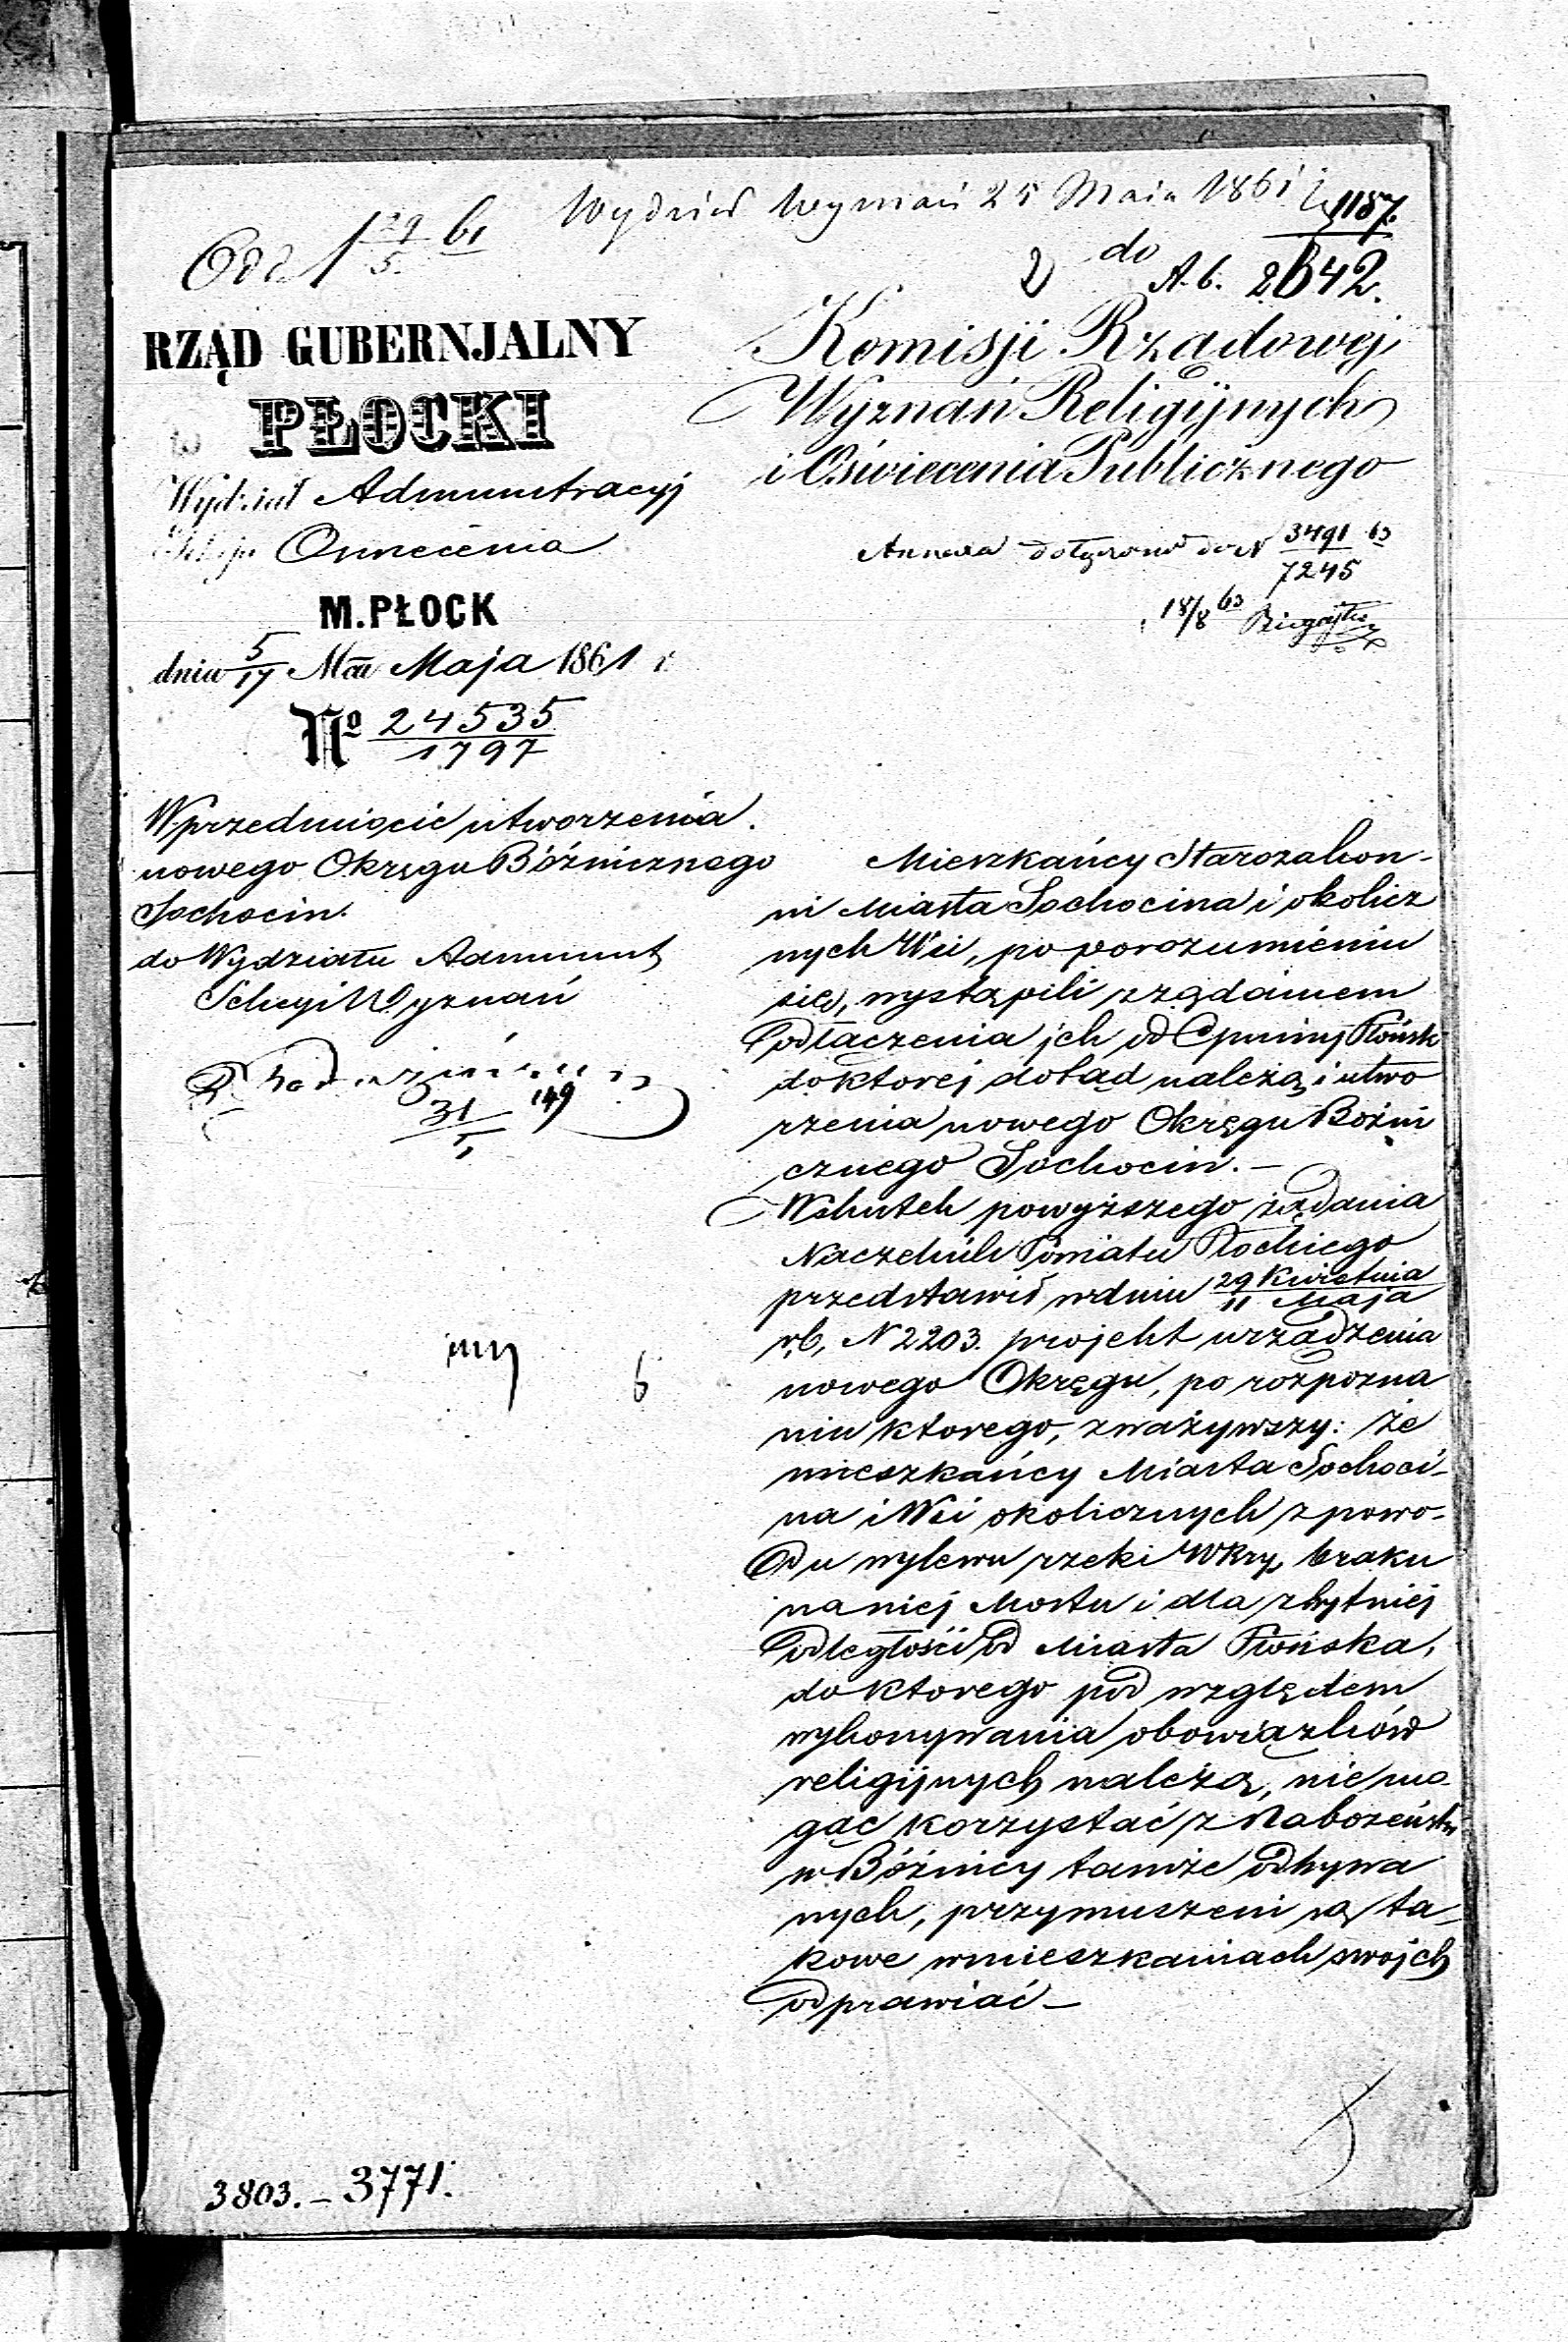 Wydział Wyznań 25 Maia 1861 1187.
Odd 1 29/5. 61
do A.b. 2642.
RZĄD GUBERNJALNY
PŁOCKI
Wydział Administracyj
Oswiecenia
M. PŁOCK
dnia 5/17 Mca Maja 1861 r
No 24535/1797
W przedmiocie utworzenia
nowego Okręgu Bóźnicznego
Sochocin.
do Wydziału Administ
Sekcyi Wyznań
31
149
3803. – 3771.
Komisji Rządowej
Wyznań Religijnych
i Oświecenia Publicznego
Annexa dołączono do N 3491 63
7245
18/8 63
Mieszkańcy Starozakon-
ni Miasta Sochocina i okolicz
nych Wsi, po porozumieniu
się, wystąpili z żądaniem
odłączenia ich od Gminy Płońsk
do ktorej dotąd należą i utwo
rzenia nowego Okręgu Bożni
cznego Sochocin. –
W skutek powyższego żądania
Naczelnik Powiatu Płockiego
przedstawił w dniu 29 Kwietnia
11 Maja
r.b, N 2203. projekt urządzenia
nowego Okręgu, po rozpozna
niu ktorego, zważywszy: że
mieszkańcy Miasta Sochoci-
na i Wsi okolicznych z powo-
du wylewu rzeki Wkry, braku
na niej Mostu i dla zbytniej
odległości od Miasta Płońska,
do ktorego pod względem
wykonywania obowiązków
religijnych należą, nie mo
gąc korzystać z Nabożeństw
w Bóźnicy tamże odbywa
nych, przymuszeni są ta-
kowe w mieszkaniach swojch
odprawiać –